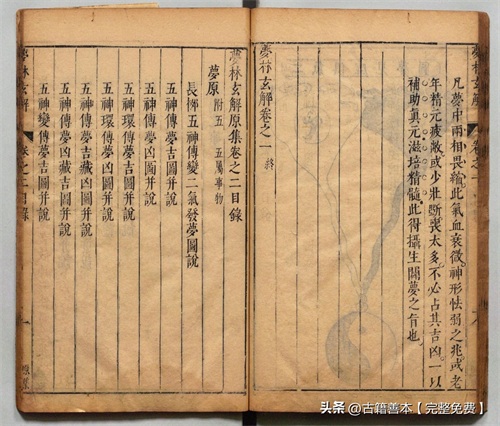 凡夢中兩相畏縮此氣血衰微神形怯弱之兆或老
年精元疲敝或少壯斷喪太多不必占其吉凶一以
補助眞元滋培精髓此得攝生關夢之旨也
夢林玄解卷之一 終
夢林玄解原集卷之二目錄
夢原 附五 五屬事物
長柳五神傳變二氣發夢圖說
五神傳夢吉圖并說
五神傳夢凶圖并說
五神環傳夢吉圖并說
五神環傳夢凶圖并說
五神傳夢吉藏凶圖并說
五神傳夢凶藏吉圖并說
五神變傳夢吉圖并說
夢林玄解 卷之二目錄 一
夢林玄解 卷之一
头条 @古籍善本【完整免费】